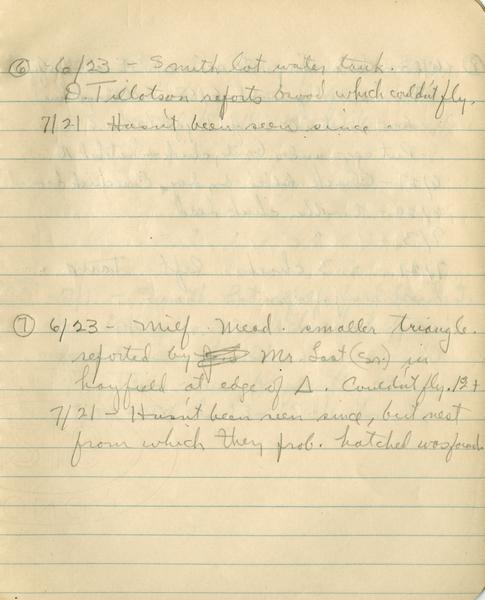 ⑥ 6/23 - Smith lot water tank.
D. Tillotson reports brood which couldn't fly.
7/21 Hasn't been seen since
⑦ 6/23 - Milf. Mead. smaller triangle.
reported by Mr. (Sr.) in
hayfield at edge of Δ. Couldn't fly. 12+
7/21 - Hasn't been seen since, but nest
from which they prob. hatched was found